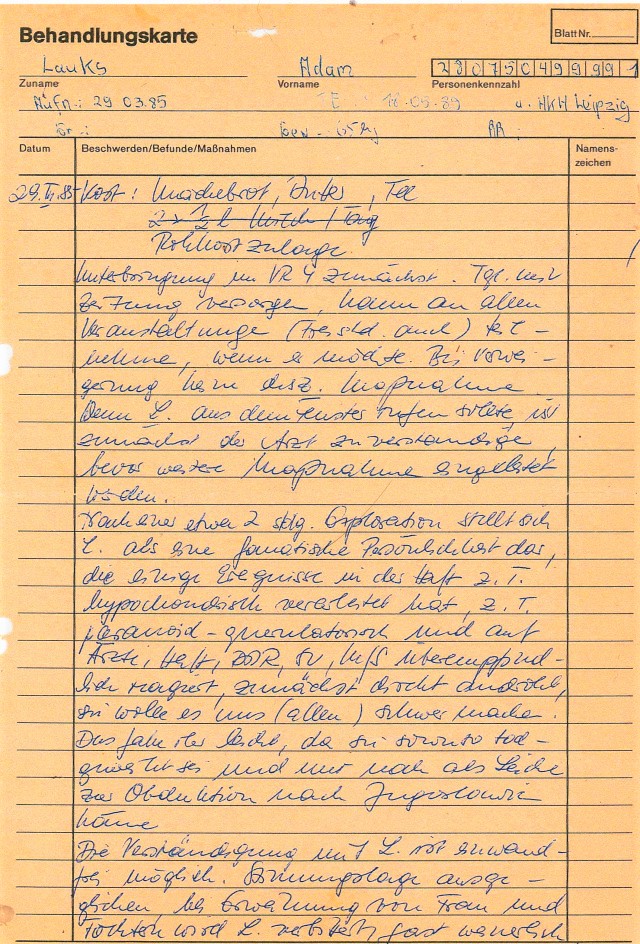 Behandlungskarte
Blatt Nr.
Lauks Adam 280750499991
Zuname Vorname Personenkennzahl
Aufn.: 29 03.85 E 16.05.89 u. HKH Leipzig
Gr.: Gew. 65 kg RR:
Datum Beschwerden/Befunde/Maßnahmen Namens-
zeichen
29. 85 Kost: Mischbrot, Butter, Tee
2 x 1/2 l Milch / Tag
Rohkostzulage.
Unterbringung im VR 4 zunächst. Tgl. mit
Zeitung versorgen, kann an allen
Veranstaltunge (Freistd. auch) teil-
nehme, wenn er möchte. Bei Verwei-
gerung kein disz. Maßnahme
Wenn L. aus dem Fenster rufen sollte, ist
zunächst der Arzt zu verständige,
bevor weitere Maßnahme eingeleitet
würden.
Nach einer etwa 2 stdg. Exploration stellt sich
L. als eine fanatische Persönlichkeit dar,
die einige Ereignisse in der Haft z. T.
hypochondrisch verarbeitet hat, z. T.
paranoid-querulatorisch und auf
Ärzte, Haft, DDR, SV, MfS überempfind-
lich reagiert, zunächst droht
wolle es uns (allen) schwer machen.
Das falle ihr leicht, da sie sowieso tod-
geweiht sei und nur noch als Leiche
zur Obduktion nach Jugoslawie
käme
Die Verständigung mit L. ist einwand-
frei möglich. Stimmungslage ausge-
glichen, bei Erwähnung von Frau und
Töchtern wird L. fast weinerlich